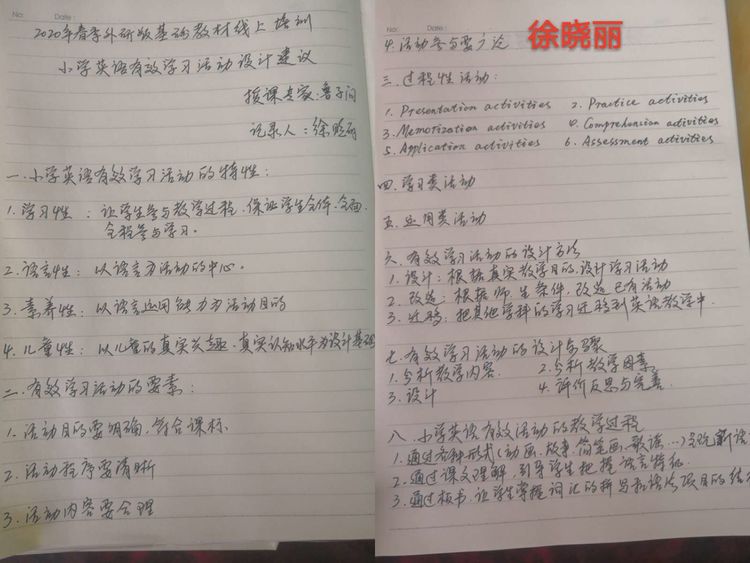 No:
Date:
2020年春季外研版基础教材线上培训
小学英语有效学习活动设计建议
授课专家:鲁子问
记录人:徐晓丽
一.小学英语有效学习活动的特性:
1.学习性:让学生参与教学过程,保证学生全体、全面、
全程参与学习。
2.语言性:以语言为活动的中心。
3.素养性:以语言运用能力为活动目的
4.儿童性:以儿童的真实兴趣,真实认知水平为设计基础
二.有效学习活动的要素:
1.活动目的要明确,符合课标.
2.活动程序要清晰
3.活动内容要合理
No:
Date:
4.活动参与要广泛
徐晓丽
三.过程性活动:
1. Presentation activities 2. Practice activities
3. Memorization activities 4. Comprehension activities
5. Application activities 6. Assessment activities
四.学习类活动
五.运用类活动
六.有效学习活动的设计方法
1.设计:根据真实教学目的,设计学习活动
2.改造:根据师生条件,改造已有活动
3.迁移:把其他学科的学习迁移到英语教学中.
七.有效学习活动的设计步骤
1.分析教学内容 2.分析教学因素
3.设计 4.评价反思与完善
八.小学英语有效活动的教学过程
1.通过各种形式(动画、故事、简笔画、歌谣…)呈现新语
2.通过课文理解,引导学生把握语言特征.
3.通过板书,让学生掌握词汇的拼写和语法项目的结